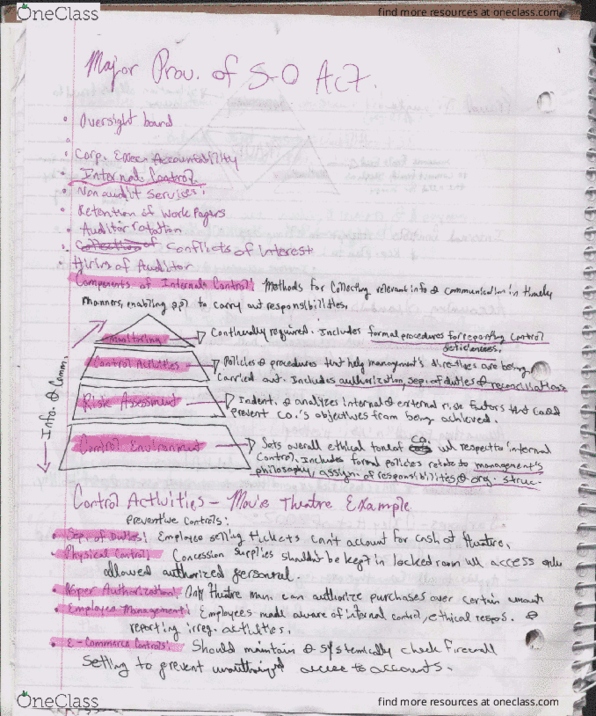 OneClass
find more resources at oneclass.com
Major Prov. of S-O Act.
Oversight board
Corp. Exec. Accountability
Internal Control
Non audit services
Retention of Work Papers
Auditor rotation
Conflicts of interest
Hiring of Auditor
Components of Internal Control: Methods for collecting relevant info & communication in timely
manners, enabling ppl to carry out responsibilities.
Monitoring
Continually required. Includes formal procedures for reporting control
deficiencies.
Control Activities
Policies & procedures that help management's directives are being
carried out. Includes authorization, sep. of duties & reconciliations
Info. & Comm.
Risk Assessment
Indent. & analizes internal & external risk factors that could
prevent co.'s objectives from being achieved.
Control Environment
Sets overall ethical tone of co.
w/ respect to internal
control. Includes formal policies relate to management's
philosophy, assign. of responsibilities & org. struc.
Control Activities - Movie Theatre Example
Preventive Controls:
Sep. of Duties: Employee selling tickets can't account for cash at theatre.
Physical Control: Concession supplies should be kept in locked room w/ access only
allowed authorized personnel.
Proper Authorization: Only theatre man. can authorize purchases over certain amount
Employee Management: Employees made aware of internal control, ethical respos. &
reporting irreg. activities.
E-Commerce Controls: Should maintain & systemically check firewall
setting to prevent unauthorized access to accounts.
OneClass
find more resources at oneclass.com